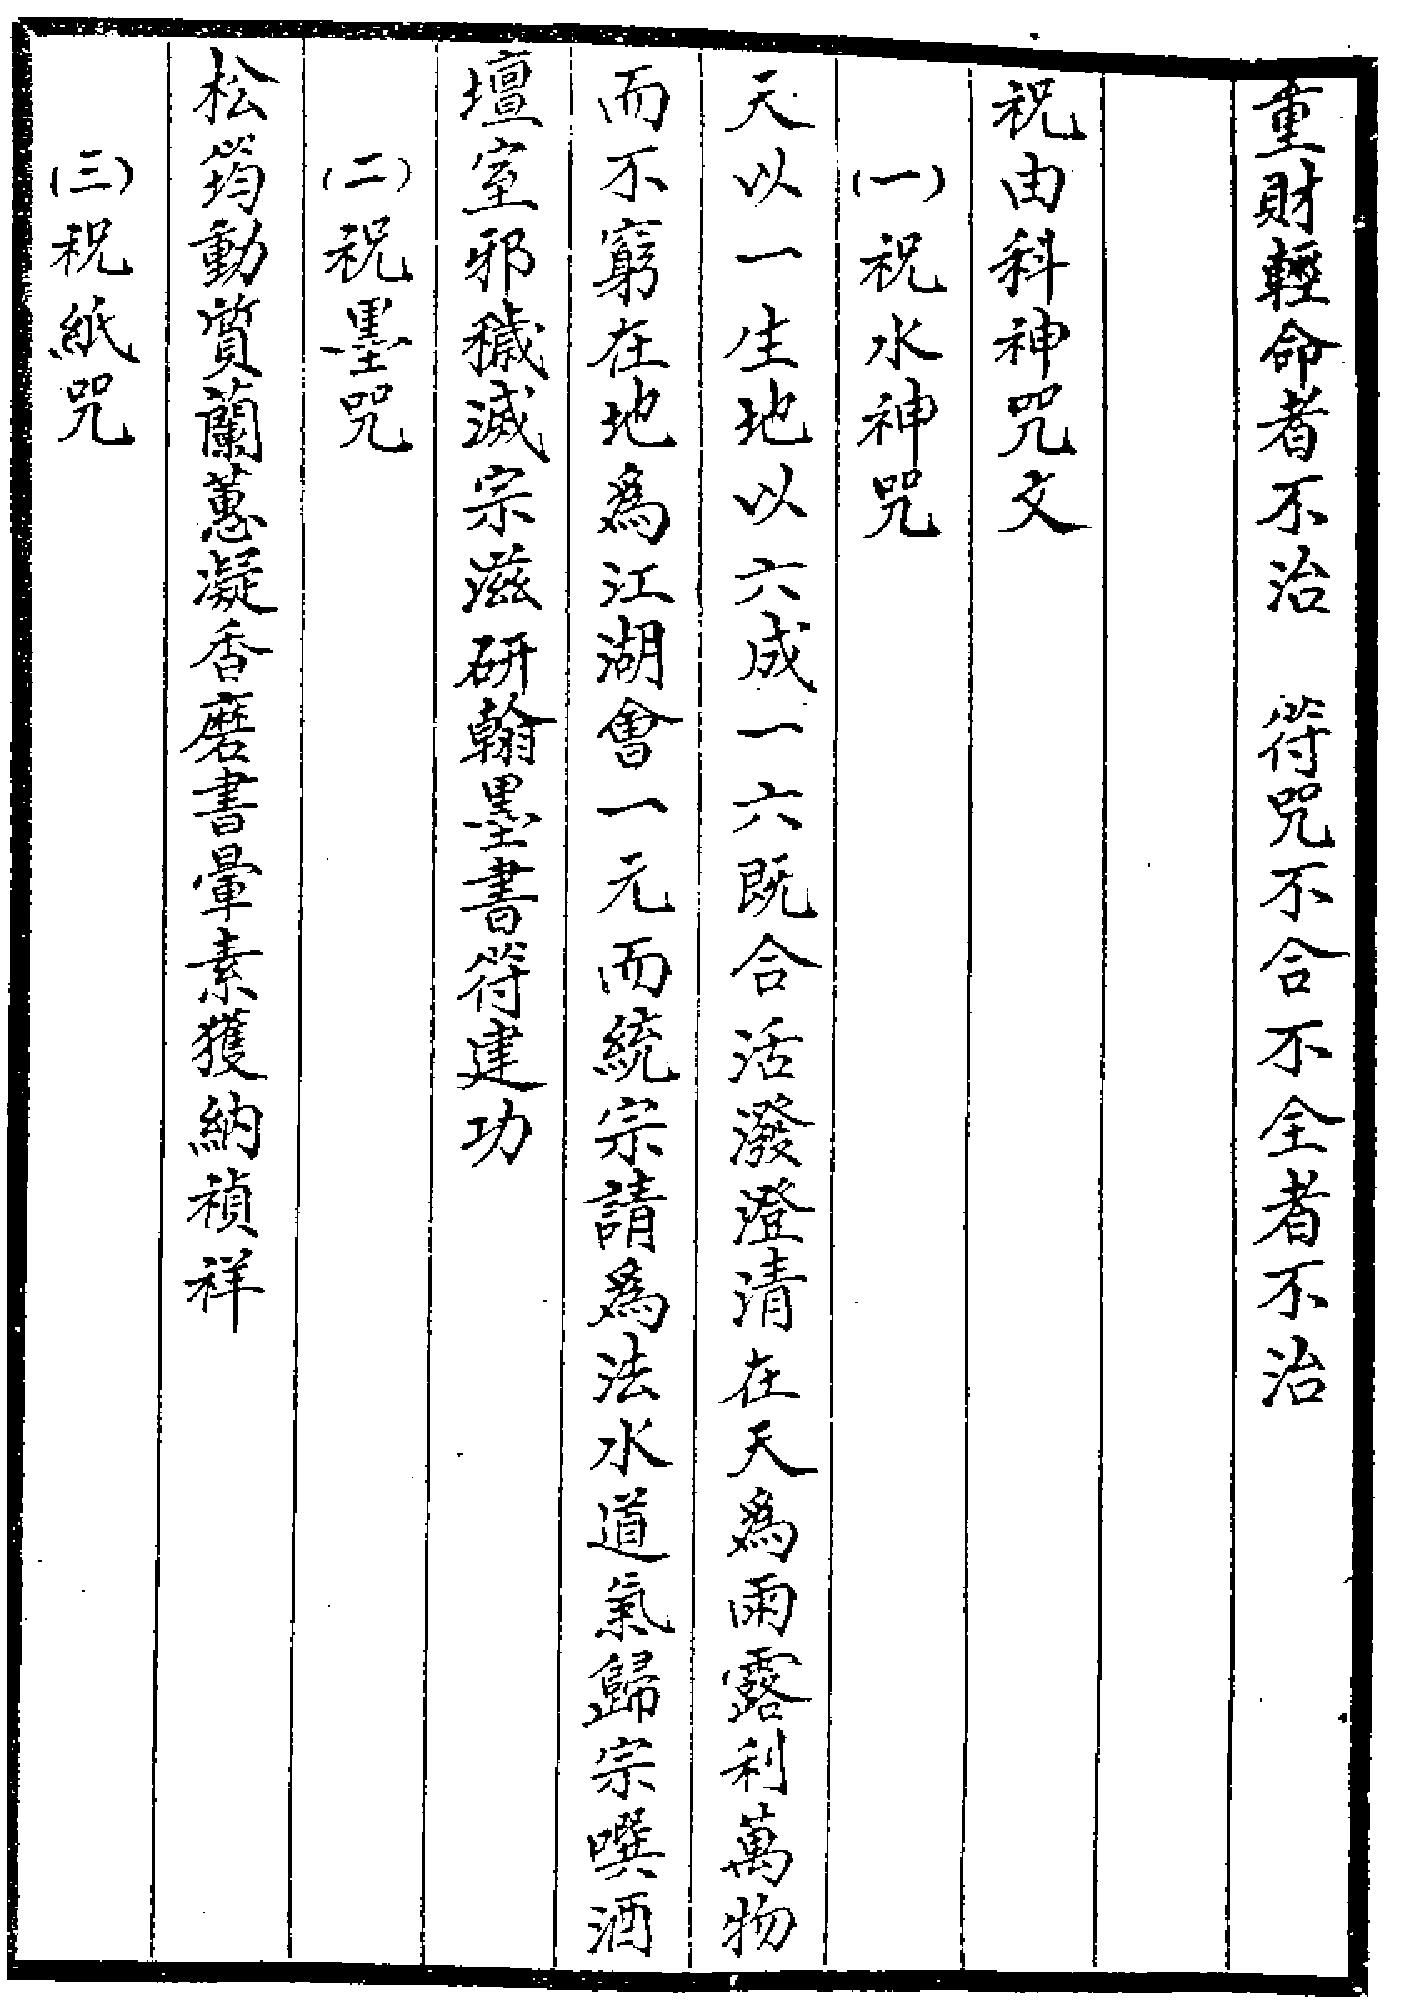 重財輕命者不治　符咒不合不全者不治
祝由科神咒文
(一)祝水神咒
天以一生地以六成一六既合活潑澄清在天為雨露利萬物
而不窮在地為江湖會一元而統宗請為法水道氣歸宗噀酒
壇室邪穢滅宗滋研翰墨書符建功
(二)祝墨咒
松筠動質蘭蕙凝香磨書暈素獲納禎祥
(三)祝紙咒